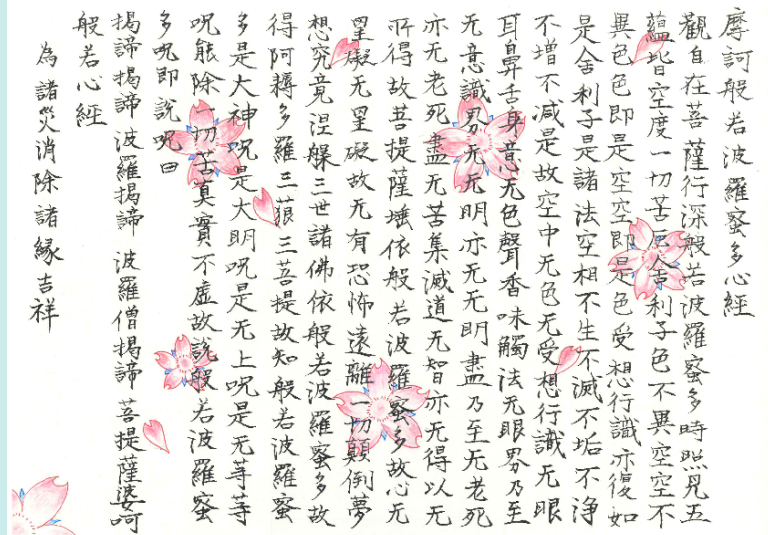 摩訶般若波羅蜜多心經
觀自在菩薩行深般若波羅蜜多時照見五
蘊皆空度一切苦厄舍利子色不異空空不
異色色即是空空即是色受想行識亦復如
是舍利子是諸法空相不生不滅不垢不浄
不增不减是故空中无色无受想行識无眼
耳鼻舌身意无色聲香味觸法无眼界乃至
无意識界无无明亦无无明盡乃至无老死
亦无老死盡无苦集滅道无智亦无得以无
所得故菩提薩埵依般若波羅蜜多故心无
罣礙无罣礙故无有恐怖遠離一切顛倒夢
想究竟涅槃三世諸佛依般若波羅蜜多故
得阿耨多羅三藐三菩提故知般若波羅蜜
多是大神呪是大明呪是无上呪是无等等
呪能除一切苦真實不虛故説般若波羅蜜
多呪即説呪曰
揭諦揭諦波羅揭諦波羅僧揭諦菩提薩婆呵
般若心經
為諸災消除諸緣吉祥